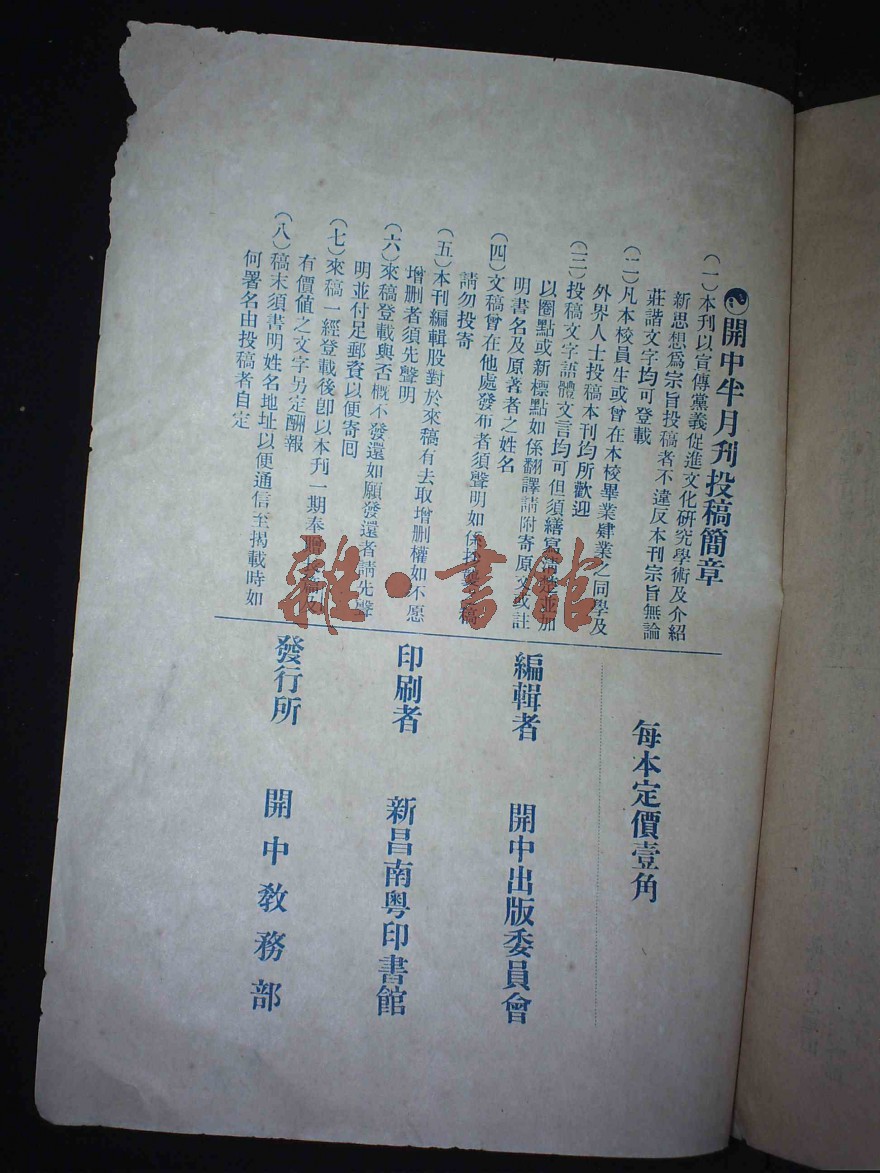 開中半月刋投稿簡章
（一）本刊以宣傳黨義促進文化研究學術及介紹
新思想爲宗旨投稿者不違反本刊宗旨無論
莊諧文字均可登載
（二）凡本校員生或曾在本校畢業肄業之同學及
外界人士投稿本刊均所歡迎
（三）投稿文字語體文言均可但須繕寫清楚並加
以圈點或新標點如係翻譯請附寄原文或註
明書名及原著者之姓名
（四）文稿曾在他處發布者須聲明如係抄襲之稿
請勿投寄
（五）本刊編輯股對於來稿有去取增删權如不愿
增删者須先聲明
（六）來稿登載與否概不發還如願發還者請先聲
明並付足郵資以便寄囘
（七）來稿一經登載後卽以本刊一期奉贈
有價値之文字另定酬報
（八）稿末須書明姓名地址以便通信至揭載時如
何署名由投稿者自定
每本定價壹角
編輯者 開中出版委員會
印刷者 新昌南粤印書館
發行所 開中教務部
雜·書館